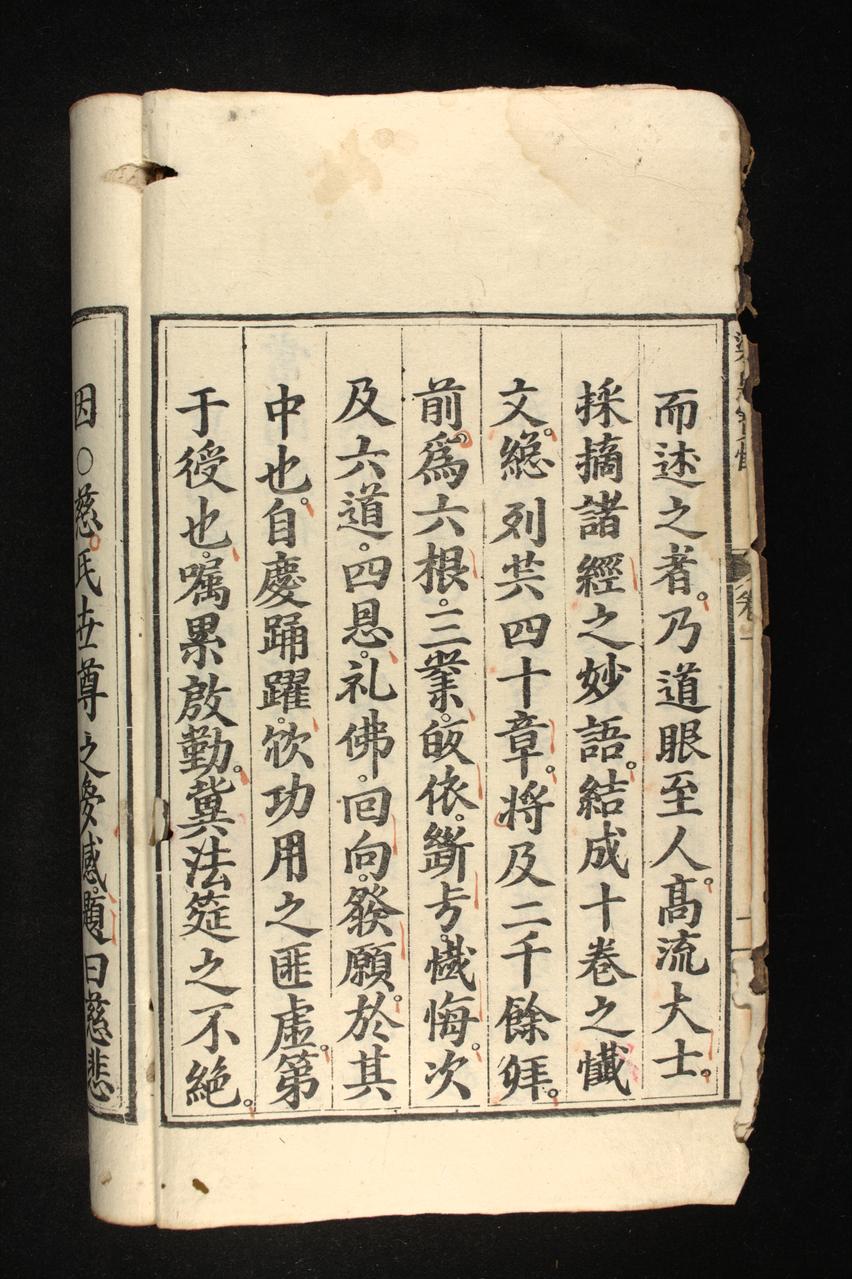 而述之者。乃道眼至人。高流大士。
採摘諸經之妙語。結成十卷之懴
文。緫列共四十章。将及二千餘拜。
前。爲六根。三業。皈依。斷疑。懴悔。次
及六道。四恩。礼佛。回向。發願。於其
中也。自慶踊躍。欣功用之匪虚。第
于授也。嘱累啟勤。冀法筵之不絶。
因○慈氏世尊之夢感。題曰慈悲